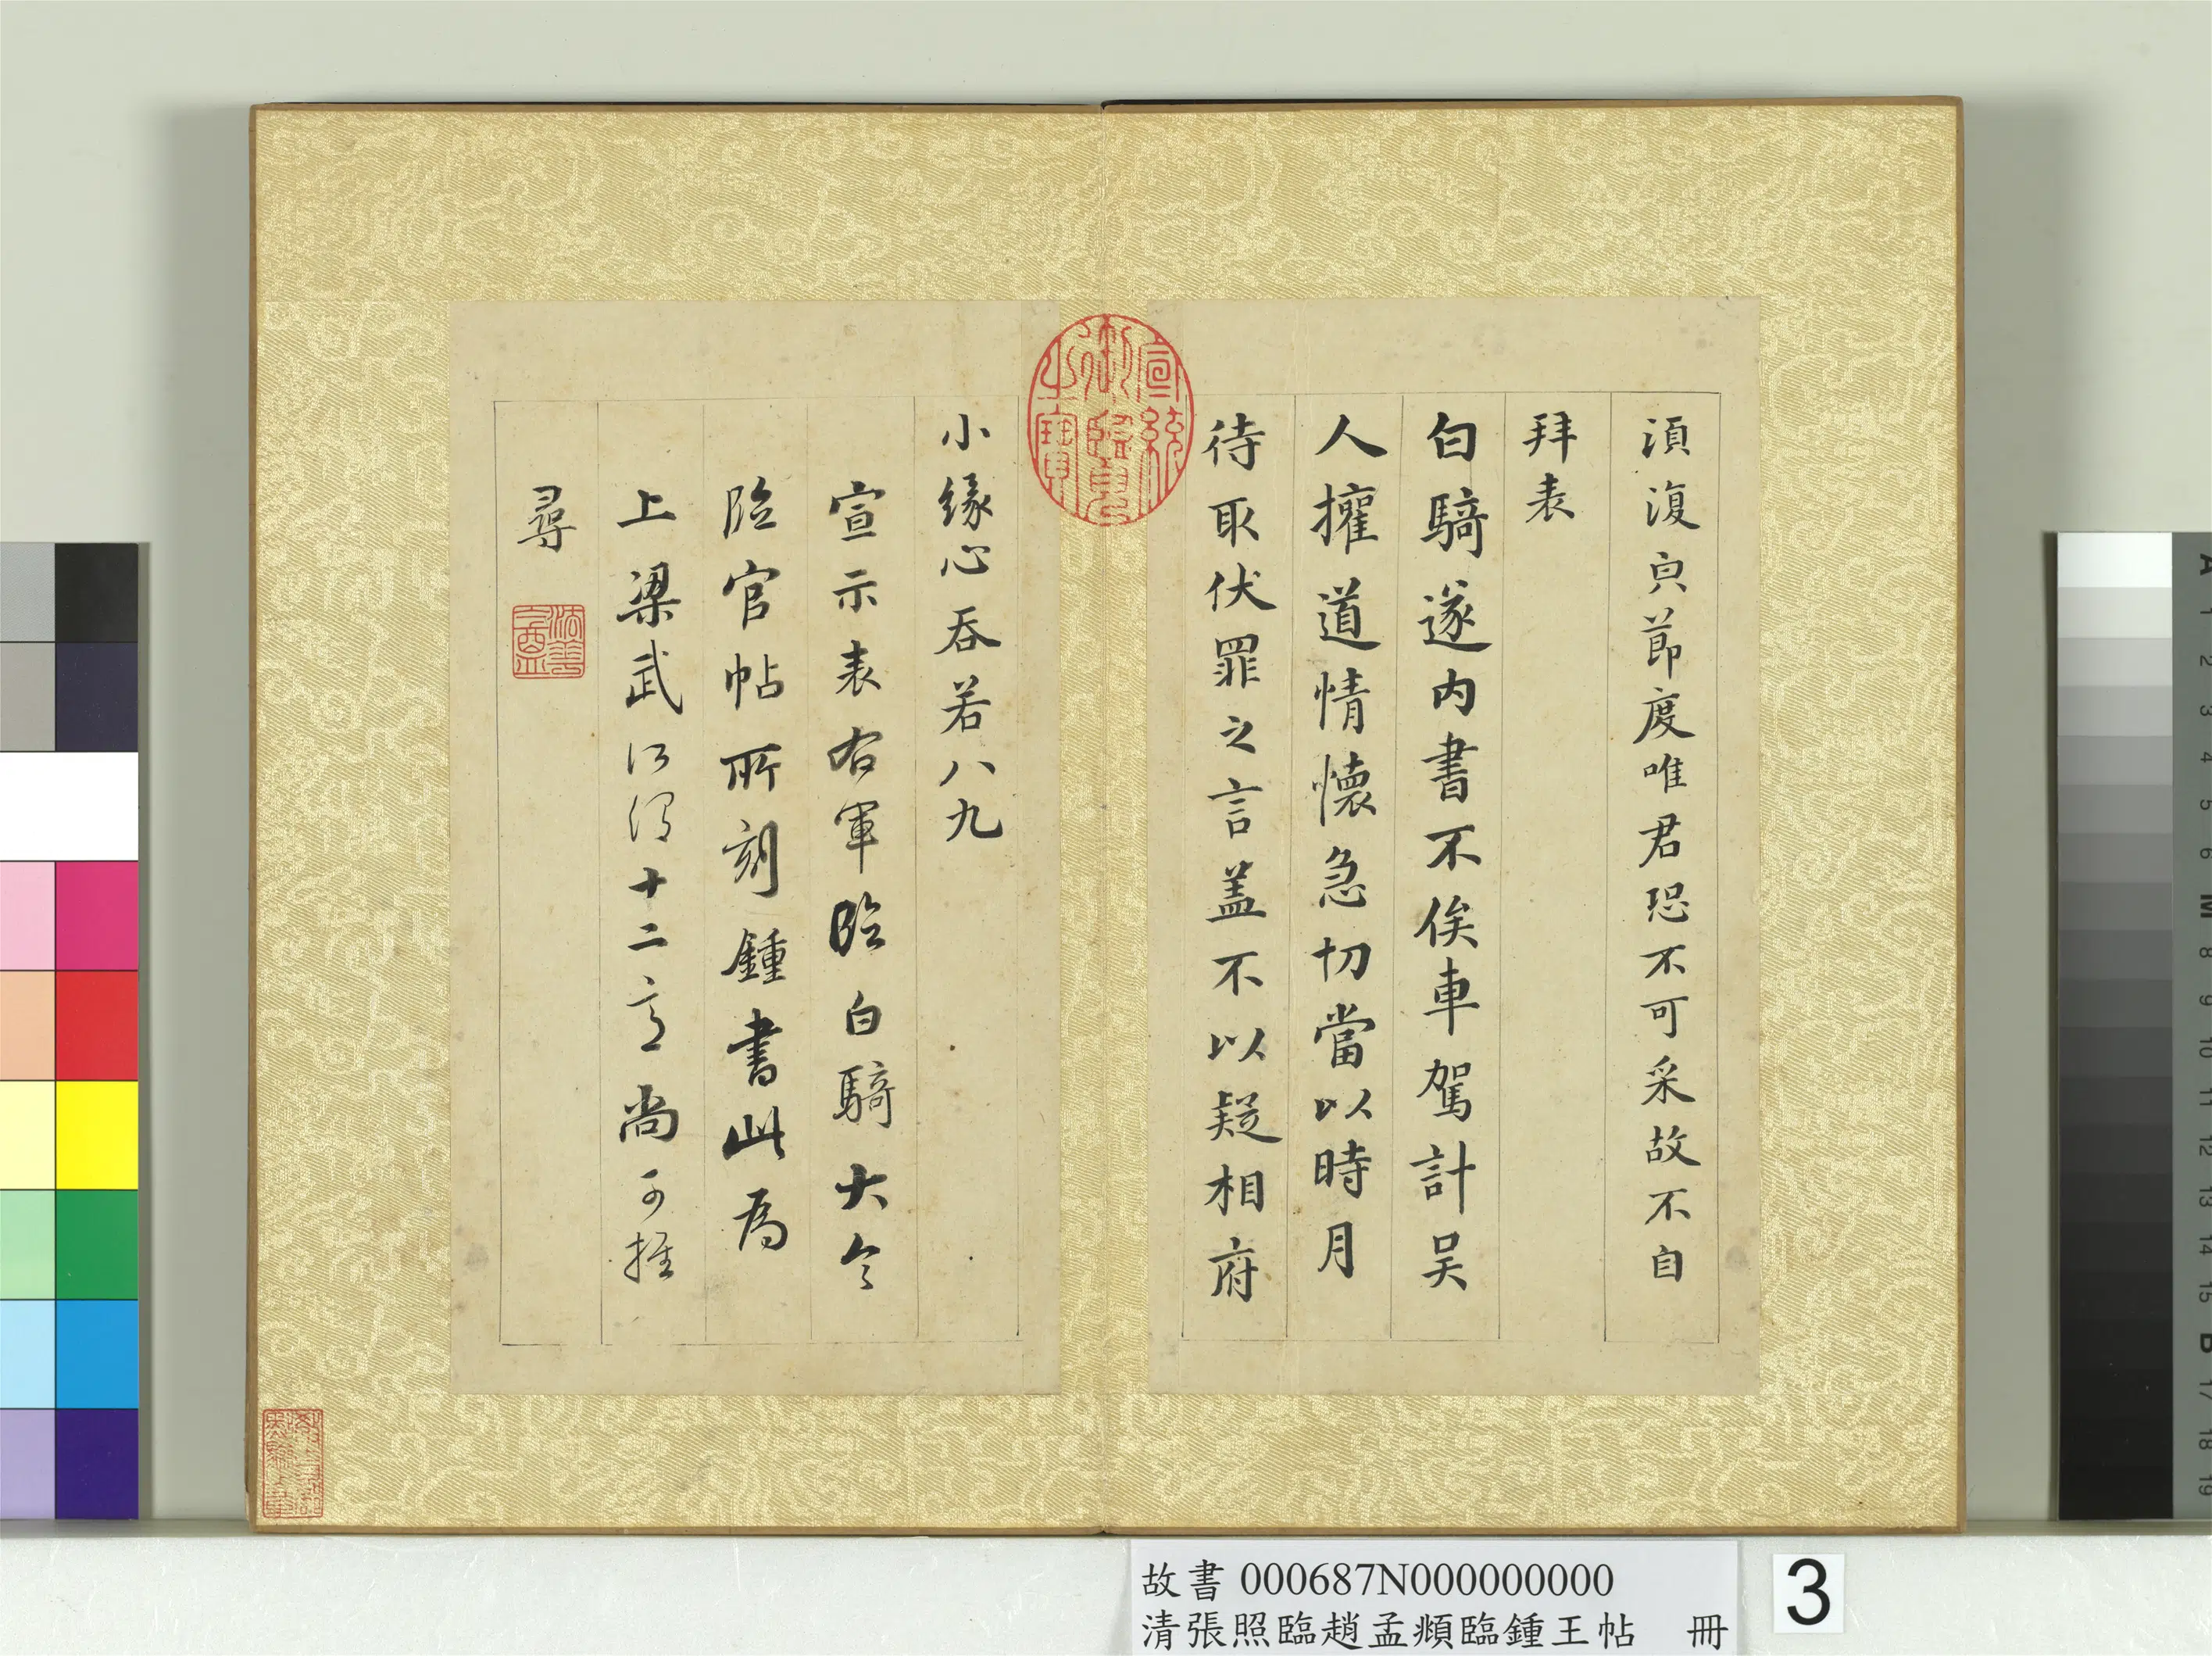 須復貞節度唯君恐不可采故不自
拜表
白騎遂內書不俟車駕計吳
人權道情懷急切當以時月
待取伏罪之言盖不以疑相府
小緣心吞若八九
宣示表右軍臨白騎大令
臨官帖所刻鍾書此為
上梁武所謂十二意尚可推
尋
宣統御覽之寶
故書 000687N000000000
清張照臨趙孟頫臨鍾王帖 冊
3